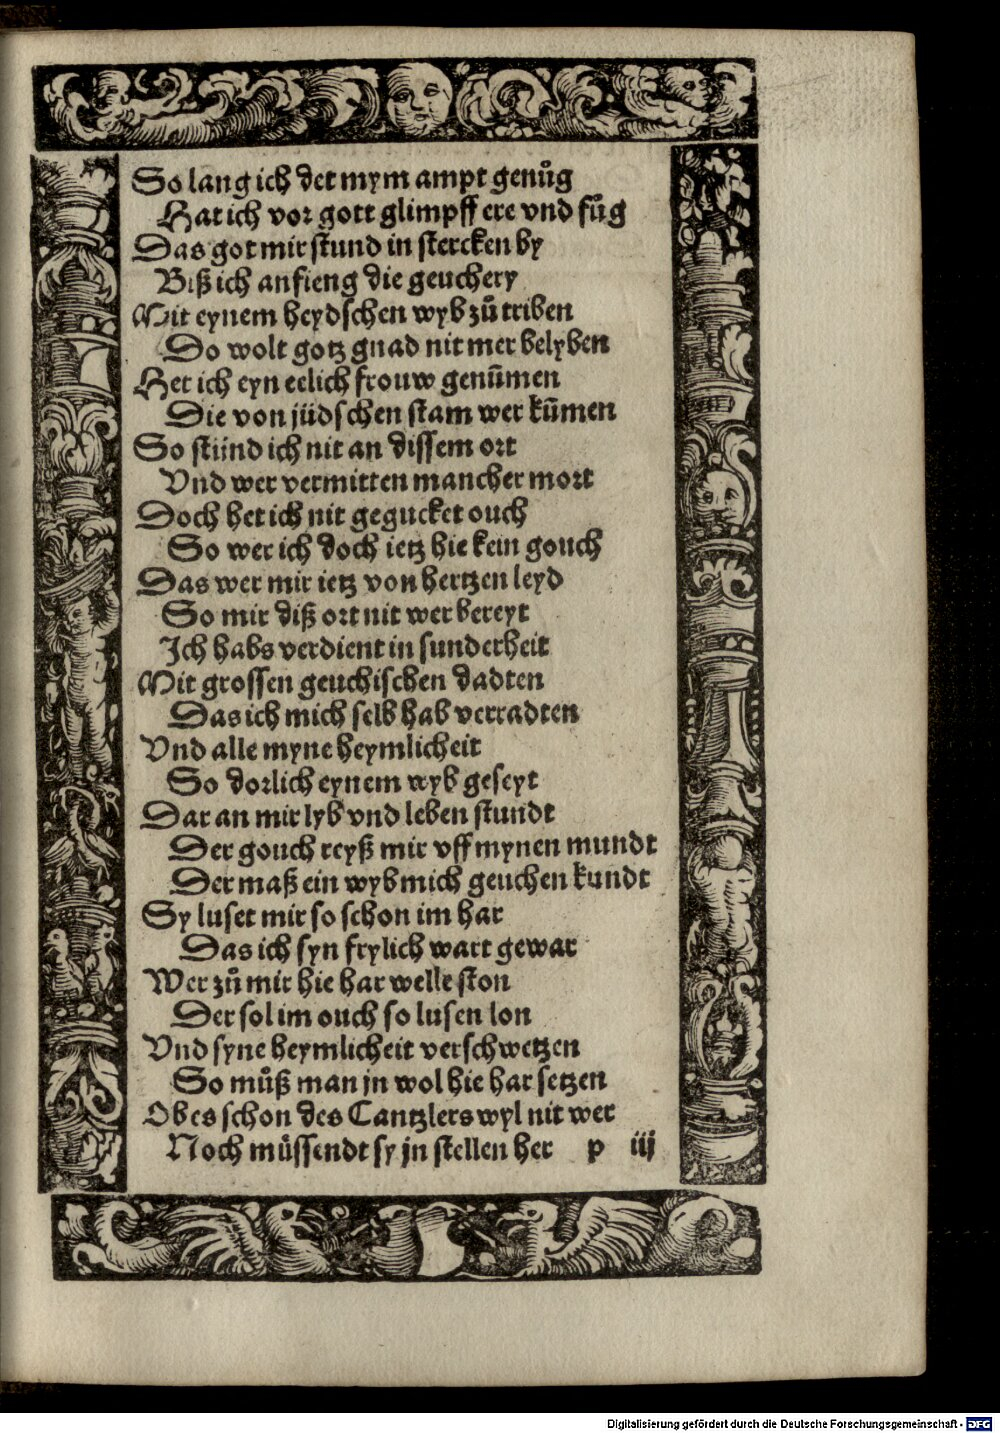 So lang ich det mym ampt genůg
Hat ich vor gott glimpff ere vnd fůg
Das got mir stund in stercken by
Biß ich anfieng die geuchery
Mit eynem heydschen wyb zů triben
Do wolt gotz gnad nit mer belyben
Het ich eyn eelich frouw genūmen
Die von jüdschen stam wer kūmen
So stünd ich nit an dissem ort
Vnd wer vermitten mancher mort
Doch het ich nit gegucket ouch
So wer ich doch ietz hie kein gouch
Das wer mir ietz von hertzen leyd
So mir diß ort nit wer bereyt
Ich habs verdient in sunderheit
Mit grossen geuchischen dadten
Das ich mich selb hab verradten
Vnd alle myne heymlicheit
So dorlich eynem wyb geseyt
Dar an mir lyb vnd leben stundt
Der gouch reyß mir vff mynen mundt
Der maß ein wyb mich geuchen kundt
Sy luset mir so schon im har
Das ich syn frylich wart gewar
Wer zů mir hie har welle ston
Der sol im ouch so lusen lon
Vnd syne heymlicheit verschwetzen
So můß man jn wol hie har setzen
Ob es schon des Cantzlers wyl nit wer
Noch müssendt sy jn stellen her p iij
Digitalisierung gefördert durch die Deutsche Forschungsgemeinschaft - DFG